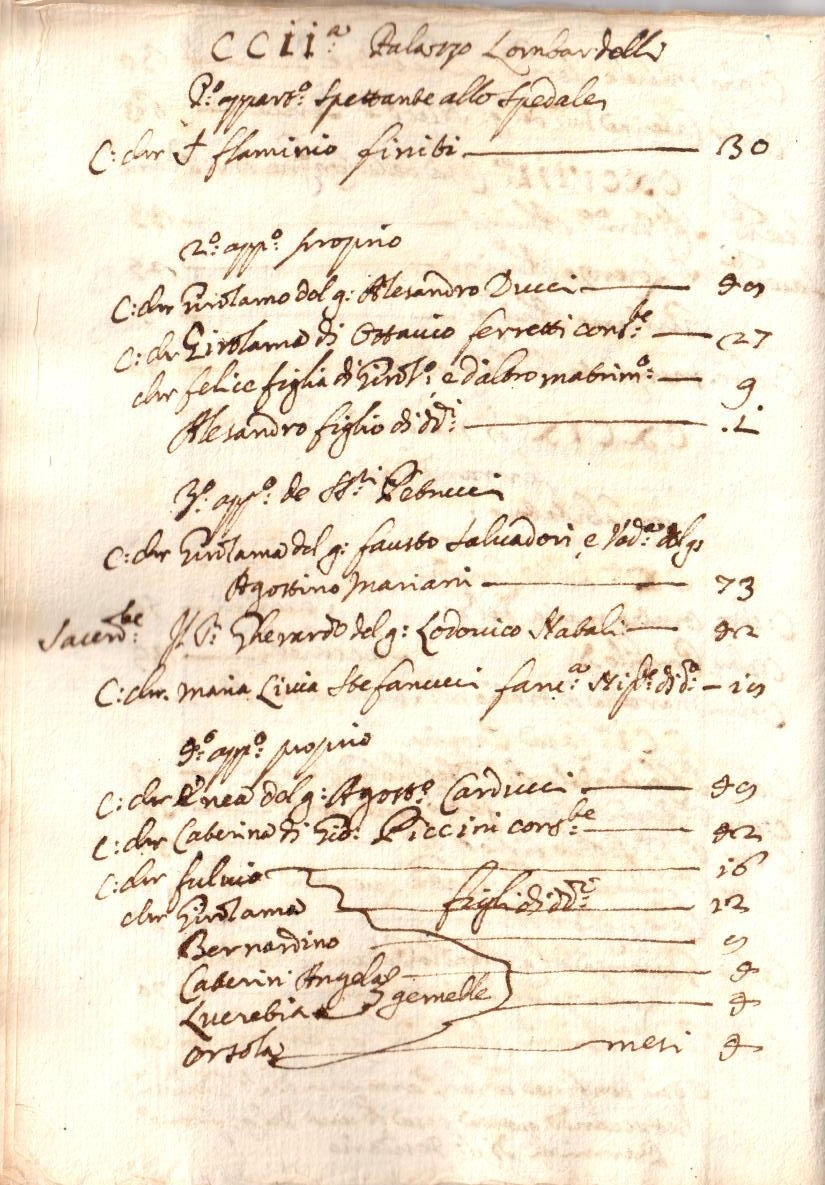 CCII.ª Palazzo Lombardelli
P.º appart.º spettante allo Spedale
C: chr † flaminio finiti 30
2.º app.º proprio
C: chr Girolamo del q: Alesandro Ducci
C: chr Girolama di Ottavio ferretti cons.te 27
chr felice figlia di Girol.º e d'altro matrim.º 9
Alesandro figlio di dd.i
3.º app.º de SS.ri Petrucci
C: chr Girolama del q: fausto Salvadori e Vad.a del q
Agostino Mariani 73
Sacerd.te Gherardo del q: Lodovico Natali 42
C: chr. Maria Livia Stefanucci fanc.a di d.o
4.º app.º proprio
C: chr Enea del q: Agost.º Carducci
C: chr Caterina di Gio: Piccini cons.te 42
C: chr fulvio 16
chr Girolama figli di dd.i 12
Bernardino
Caterin: Angela 4
Lucretia gemelle 4
Orsola mesi 4